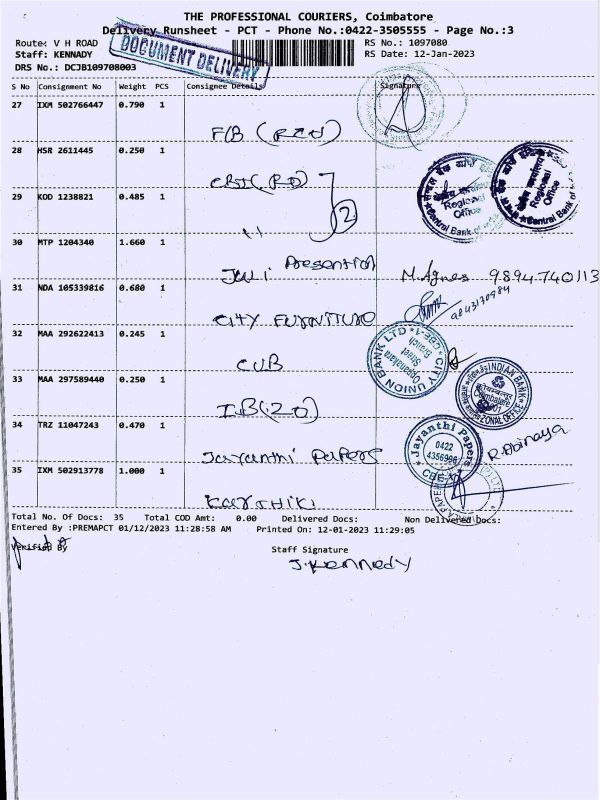 THE PROFESSIONAL COURIERS, Coimbatore
Delivery Runsheet - PCT - Phone No.:0422-3505555 - Page No.:3
Route: V H ROAD
RS No.: 1097080
Staff: KENNADY
RS Date: 12-Jan-2023
DRS No.: DCJB109708003
DOCUMENT DELIVERY
S No Consignment No Weight PCS Consignee Details Signature
27 IXM 502766447 0.790 1
28 HSR 2611445 0.250 1
Regional Office
Central Bank of
Regional Office
Central Bank of
29 KOD 1238821 0.485 1
2
30 MTP 1204340 1.660 1
M.Agnes 9894740113
31 NDA 105339816 0.680 1
9843130984
CITY FURNITURE
32 MAA 292622413 0.245 1
CITY UNION BANK LTD
Branch
CUB
33 MAA 297589440 0.250 1
INDIAN BANK
ZONAL OFFICE
Coimbatore
IB(ZO)
34 TRZ 11047243 0.470 1
Jayanthi Papers
0422
CBE
R.Abinaya
Jayanthi Papers
35 IXM 502913778 1.000 1
Total No. Of Docs: 35 Total COD Amt: 0.00 Delivered Docs: Non Delivered Docs:
Entered By :PREMAPCT 01/12/2023 11:28:58 AM Printed On: 12-01-2023 11:29:05
Verified By
Staff Signature
J.Kennedy